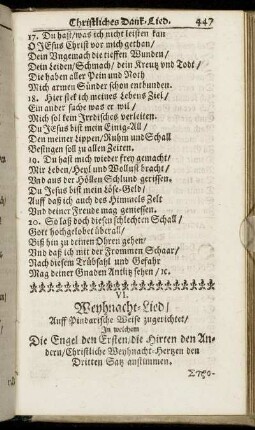 Christliches Danck-Lied. 447
17. Du hast/was ich nicht leisten kan
O JEsus Christ vor mich gethan/
Dein Ungemach die tieffen Wunden/
Dein Leiden/Schmach/dein Kreutz und Todt/
Die haben aller Pein und Noth
Mich armen Sünder schon entbunden.
18. Hier steck ich meines Lebens Ziel/
Ein ander suche was er wil/
Mich sol kein Irrdisches verleiten.
Du JEsus bist mein Ewig-All/
Den meiner Lippen/Ruhm und Schall
Besingen soll zu allen Zeiten.
19. Du hast mich wieder frey gemacht/
Mir Leben/Heyl und Wollust bracht/
Und aus der Höllen Schlund gerissen.
Du Jesus bist mein Löse-Geld/
Auff daß ich auch des Himmels Zelt
Und deiner Freude mag geniessen.
20. So laß doch diesen schlechten Schall/
Gott hochgelobet überall/
Biß hin zu deinen Ohren gehen/
Und daß ich mit der Frommen Schaar/
Nach diesem Trübsahl und Gefahr
Mag deiner Gnaden Antlitz sehen/ꝛc.
VI.
Weyhnacht-Lied/
Auff Pindarische Weise zugerichtet/
In welchem
Die Engel den Ersten/die Hirten den An-
dern/Christliche Weyhnacht-Hertzen den
Dritten Satz anstimmen.